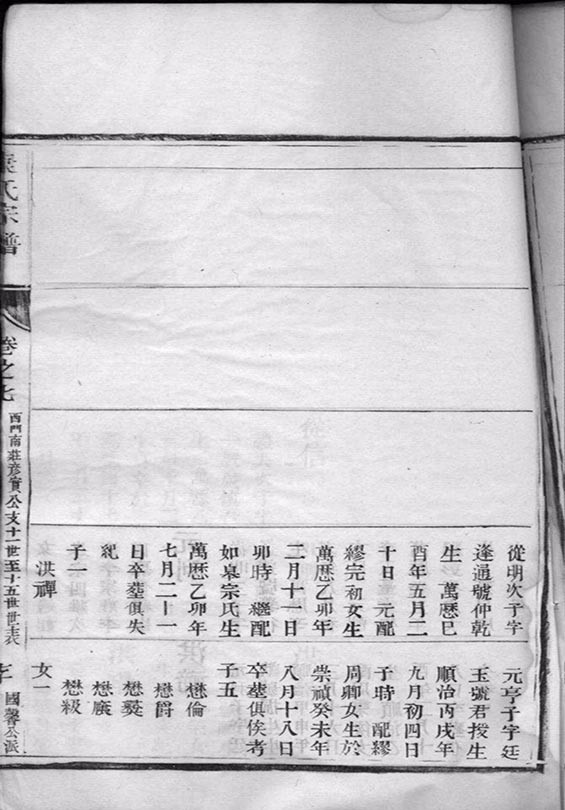 從明次子字
逢通號仲乾
生 萬歴巳
酉年五月二
十日 元配
繆完初女生
萬歴乙卯年
二月十一日
卯時 繼配
如皋宗氏生
萬歴乙卯年
七月二十一
日卒塟俱失
紀
子一
洪禪
元亨子字廷
玉號君授生
順治丙戌年
九月初四日
子時 配繆
周卿女生於
崇禎癸未年
八月十八日
卒塟俱俟考
子五
懋倫
懋爵
懋燮
懋廣
懋級
女一
氏宗譜
卷之七
西門南莊彥實公支十一世至十五世世表
國馨公派